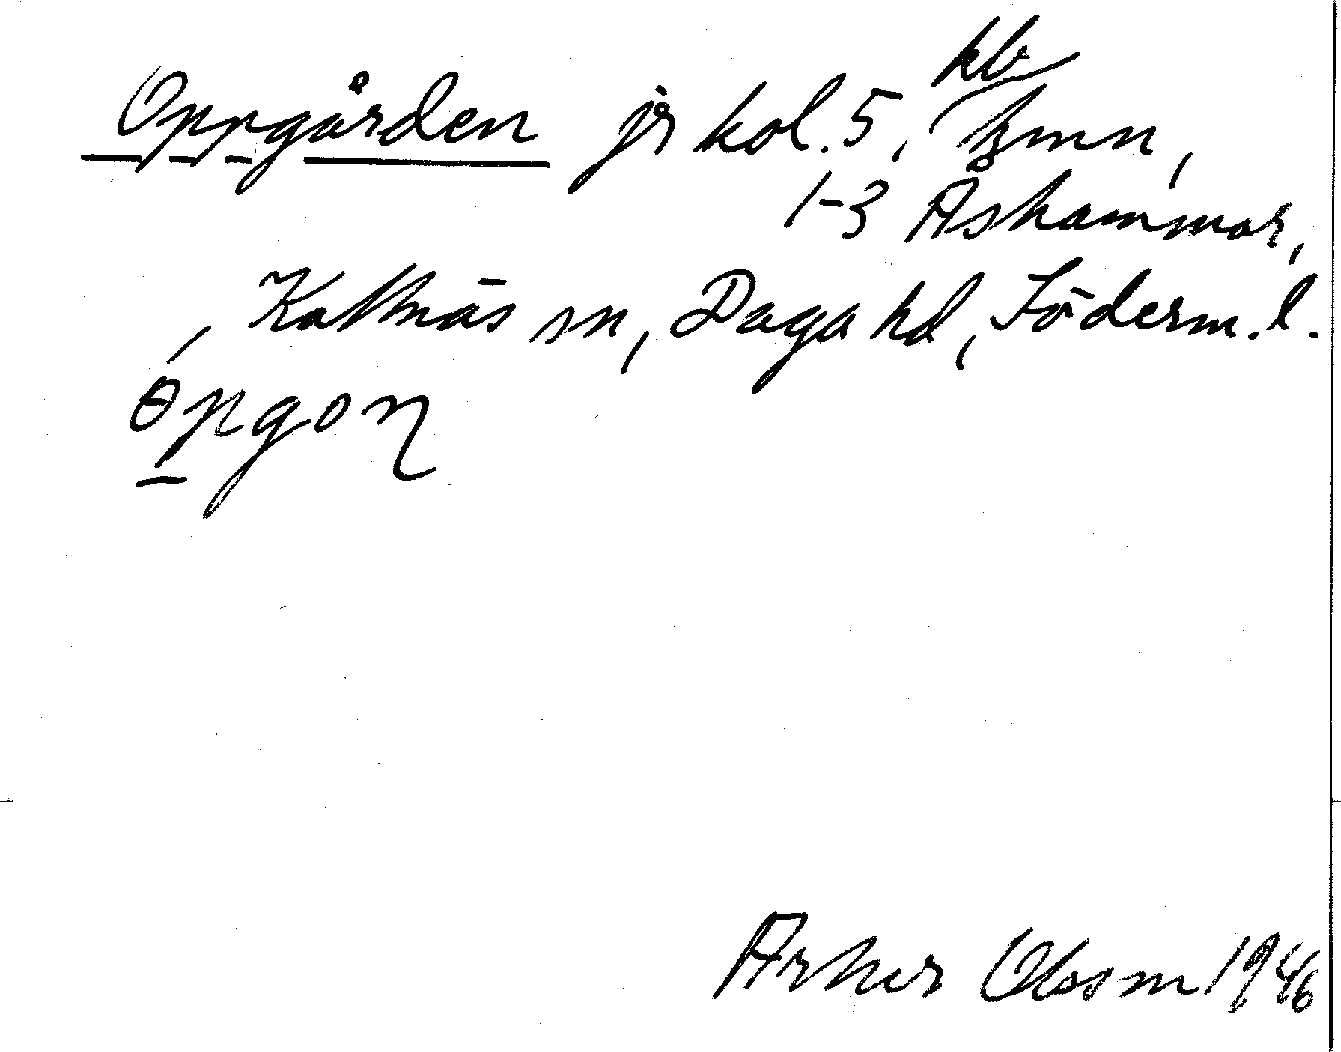 kb
Oppgården jr kol. 5, hmn,
1-3 Åshammar,
, Kattnäs sn, Daga hd, Söderm. l.
ɵpgoɳ
Arthur Olsson 1946